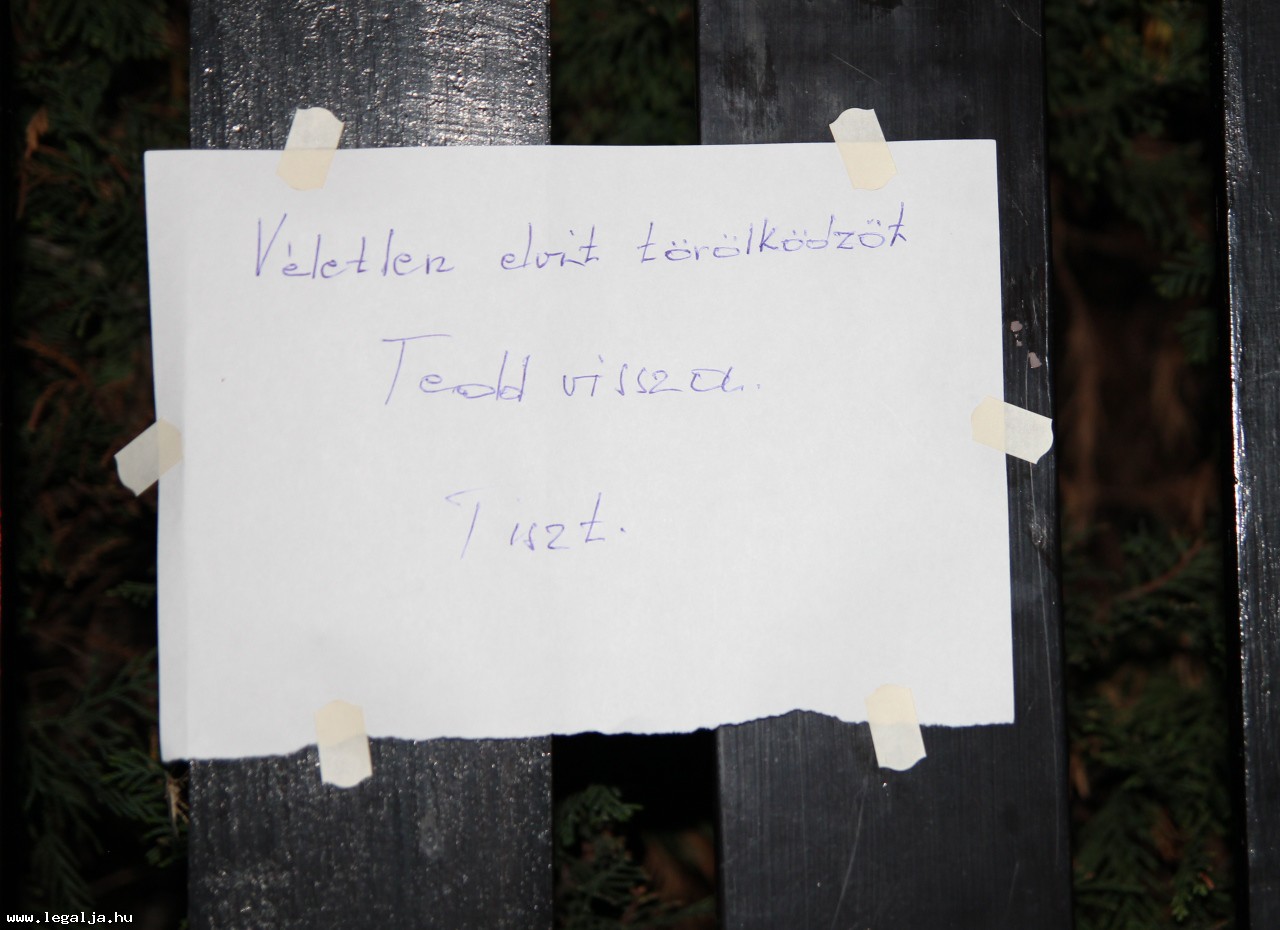 Véletlen elvit törölködzöt
Tedd vissza..
Tiszt.
www.legalja.hu